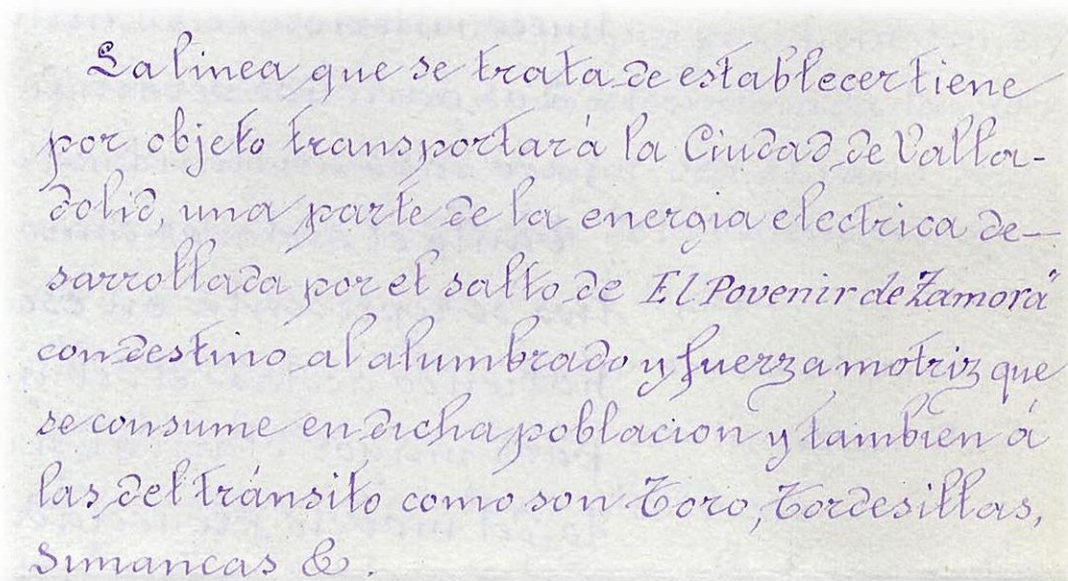 La linea que se trata de establecer tiene
por objeto transportar á la Ciudad de Valla-
dolid, una parte de la energia electrica de-
sarrollada por el salto de El Povenir de Zamora"
con destino al alumbrado y fuerza motriz que
se consume en dicha poblacion y tambien á
las del tránsito como son Toro, Tordesillas,
Simancas &.